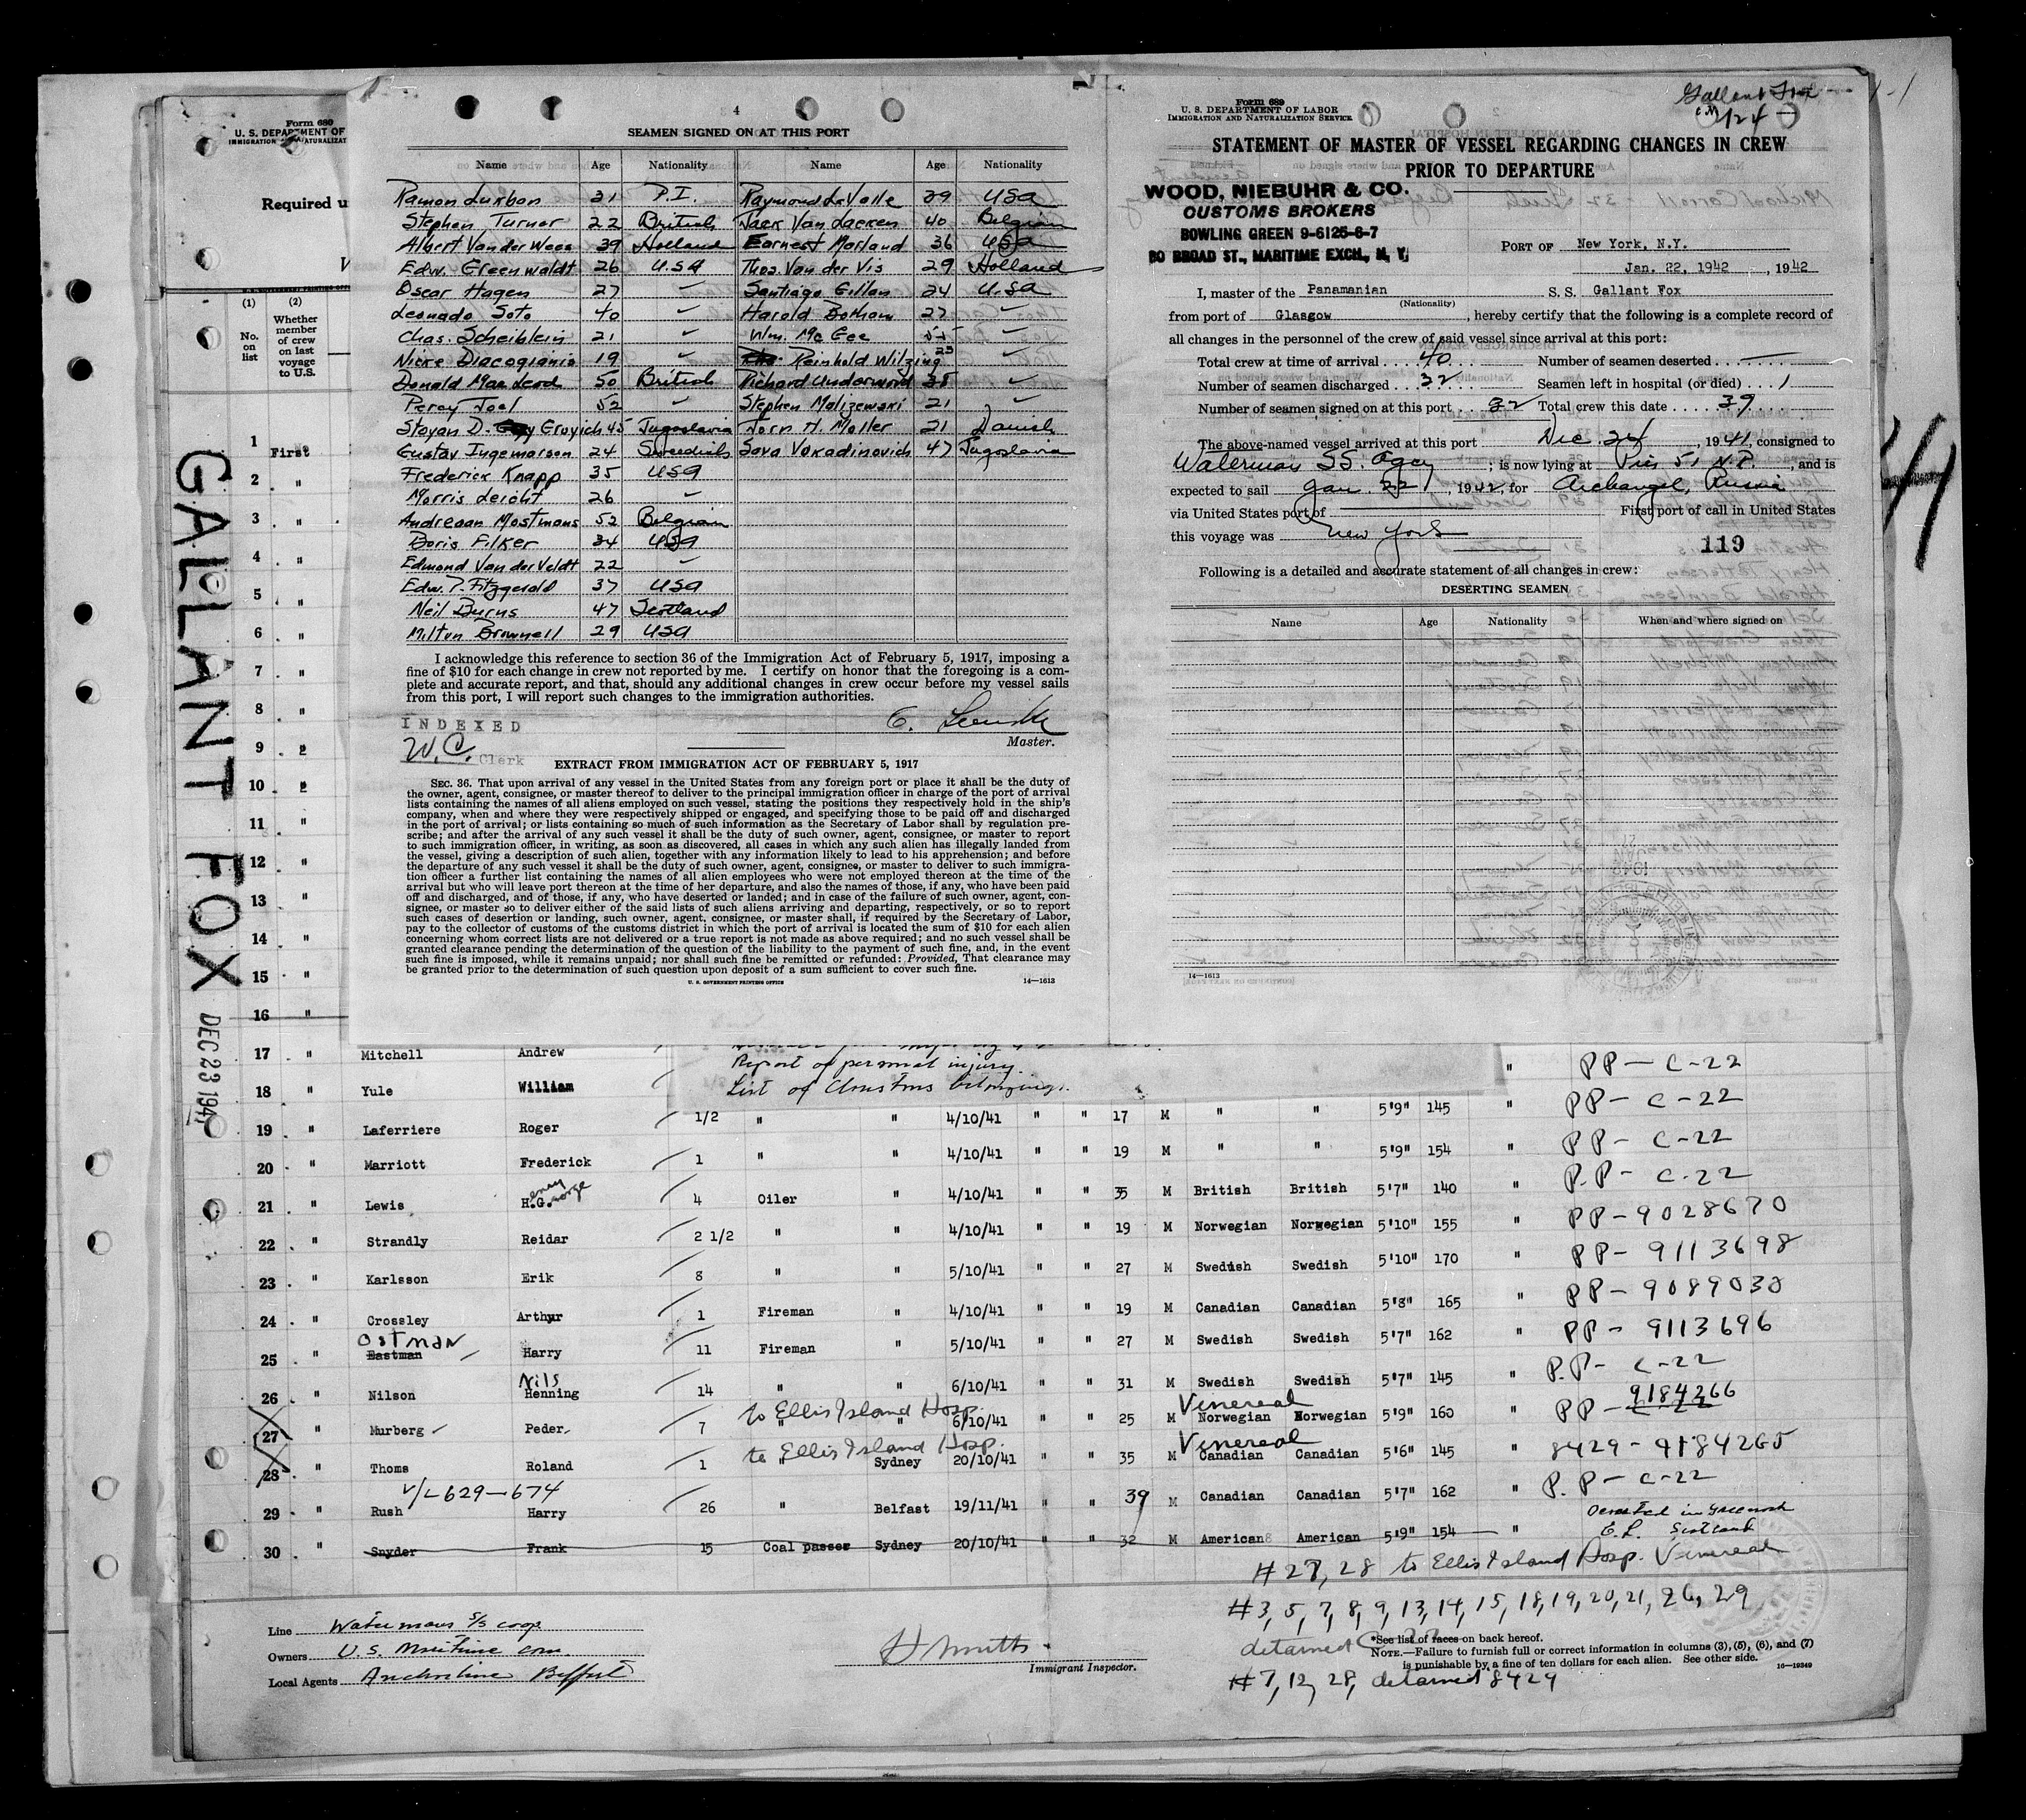 Form 680
U. S. DEPARTMENT OF
IMMIGRATION
Required
(1) (2)
No. on list
Whether member of crew on last voyage to U.S.
GALLANT FOX
DEC 23 1941
1 First
2 "
3 "
4 "
5 "
6 "
7 "
8 "
9
10
11 "
12 "
13 "
14 "
15 "
16 "
4
SEAMEN SIGNED ON AT THIS PORT
Name Age Nationality Name Age Nationality
Ramon Luxbon 31 P.I. Raymond La Valle 39 USA
Stephen Turner 22 British Jack Van Lacken 40 Belgian
Albert Van der Wees 39 Holland Earnest Marland 36 USA
Edw. Greenwaldt 26 U.S.A Thos. Van der Vis 29 Holland
Oscar Hagen 27 " Santiago Gillan 24 U.S.A
Leonado Soto 40 " Harold Bothom 27 "
Chas. Scheiblein 21 " Wm. McGee 55 "
Nicke Diacogianis 19 " Reinhold Wilzing 23
Donald MacLeod 50 British Richard Underwood 38 "
Percy Joel 52 " Stephen Malizewski 21 "
Stoyan D. Gruyich 45 Jugoslavia Jorn H. Moller 21 Danish
Gustav Ingemarsen 24 Swedish Sava Vokadinovich 47 Jugoslavia
Frederick Knapp 35 USA
Morris Leight 26 "
Andreaan Mostmans 52 Belgian
Boris Filker 34 USA
Edmond Van der Veldt 22 "
Edw. P. Fitzgerald 37 USA
Neil Burns 47 Scotland
Milton Brownell 29 USA
I acknowledge this reference to section 36 of the Immigration Act of February 5, 1917, imposing a
fine of $10 for each change in crew not reported by me. I certify on honor that the foregoing is a com-
plete and accurate report, and that, should any additional changes in crew occur before my vessel sails
from this port, I will report such changes to the immigration authorities.
INDEXED
W.C. Clerk
Master.
EXTRACT FROM IMMIGRATION ACT OF FEBRUARY 5, 1917
SEC. 36. That upon arrival of any vessel in the United States from any foreign port or place it shall be the duty of
the owner, agent, consignee, or master thereof to deliver to the principal immigration officer in charge of the port of arrival
lists containing the names of all aliens employed on such vessel, stating the positions they respectively hold in the ship's
company, when and where they were respectively shipped or engaged, and specifying those to be paid off and discharged
in the port of arrival; or lists containing so much of such information as the Secretary of Labor shall by regulation pre-
scribe; and after the arrival of any such vessel it shall be the duty of such owner, agent, consignee, or master to report
to such immigration officer, in writing, as soon as discovered, all cases in which any such alien has illegally landed from
the vessel, giving a description of such alien, together with any information likely to lead to his apprehension; and before
the departure of any such vessel it shall be the duty of such owner, agent, consignee, or master to deliver to such immigra-
tion officer a further list containing the names of all alien employees who were not employed thereon at the time of the
arrival but who will leave port thereon at the time of her departure, and also the names of those, if any, who have been paid
off and discharged, and of those, if any, who have deserted or landed; and in case of the failure of such owner, agent, con-
signee, or master so to deliver either of the said lists of such aliens arriving and departing, respectively, or so to report
such cases of desertion or landing, such owner, agent, consignee, or master shall, if required by the Secretary of Labor,
pay to the collector of customs of the customs district in which the port of arrival is located the sum of $10 for each alien
concerning whom correct lists are not delivered or a true report is not made as above required; and no such vessel shall be
granted clearance pending the determination of the question of the liability to the payment of such fine, and, in the event
such fine is imposed, while it remains unpaid; nor shall such fine be remitted or refunded: Provided, That clearance may
be granted prior to the determination of such question upon deposit of a sum sufficient to cover such fine.
U. S. GOVERNMENT PRINTING OFFICE 14—1613
Form 689
U. S. DEPARTMENT OF LABOR
IMMIGRATION AND NATURALIZATION SERVICE
Gallant Fox
1/24
STATEMENT OF MASTER OF VESSEL REGARDING CHANGES IN CREW
PRIOR TO DEPARTURE
WOOD, NIEBUHR & CO.
CUSTOMS BROKERS
BOWLING GREEN 9-6125-6-7
80 BROAD ST., MARITIME EXCH., N. Y.
PORT OF New York, N.Y.
Jan. 22, 1942, 1942
I, master of the Panamanian S. S. Gallant Fox
(Nationality)
from port of Glasgow, hereby certify that the following is a complete record of
all changes in the personnel of the crew of said vessel since arrival at this port:
Total crew at time of arrival 40 Number of seamen deserted —
Number of seamen discharged 32 Seamen left in hospital (or died) 1
Number of seamen signed on at this port 32 Total crew this date 39
The above-named vessel arrived at this port Dec. 24, 1941, consigned to
Waterman SS. Agcy; is now lying at Pier 51 N.R., and is
expected to sail Jan. 22, 1942, for Archangel, Russia
via United States port of ——— First port of call in United States
this voyage was New York
119
Following is a detailed and accurate statement of all changes in crew:
DESERTING SEAMEN
Name Age Nationality When and where signed on
14—1613
Report of personal injury.
List of belongings.
17 " Mitchell Andrew " PP— C-22
18 " Yule William PP— C-22
19 " Laferriere Roger 1/2 " " 4/10/41 " " 17 M " " 5'9" 145 " PP— C-22
20 " Marriott Frederick 1 " " 4/10/41 " " 19 M " " 5'9" 154 " P.P— C-22
21 " Lewis H.G. enry eorge 4 Oiler " 4/10/41 " " 35 M British British 5'7" 140 "
22 " Strandly Reidar 2 1/2 " " 4/10/41 " " 19 M Norwegian Norwegian 5'10" 155 " PP—9028670
23 " Karlsson Erik 8 " " 5/10/41 " " 27 M Swedish Swedish 5'10" 170 " PP— 9113698
24 " Crossley Arthur 1 Fireman " 4/10/41 " " 19 M Canadian Canadian 5'8" 165 " PP— 9089030
25 " Eastman Ostman Harry 11 Fireman " 5/10/41 " " 27 M Swedish Swedish 5'7" 162 " PP— 9113696
26 " Nilson Nils Henning 14 " " 6/10/41 " " 31 M Swedish Swedish 5'7" 145 " P.P— C-22
27 " Murberg Peder 7 to Ellis Island Hosp. " " 6/10/41 " " 25 M Venereal Norwegian Norwegian 5'9" 160 " PP— C-22 9184266
28 " Thoms Roland 1 to Ellis Island Hosp. " Sydney 20/10/41 " " 35 M Venereal Canadian Canadian 5'6" 145 " 8429— 9184265
29 " Rush V/L 629—674 Harry 26 " Belfast 19/11/41 " " 39 M Canadian Canadian 5'7" 162 " P.P— C-22
30 " Snyder Frank 15 Coal passer Sydney 20/10/41 " " 32 M American American 5'9" 154 " Deserted in Greenock Scotland
#27, 28 to Ellis Island Hosp. Venereal
#3, 5, 7, 8, 9, 13, 14, 15, 18, 19, 20, 21, 26, 29
detained C-22
#7, 12, 28, detained 8429
Line Watermans S/S coop
Owners U.S. Maritime com.
Local Agents Anchorline Belfast
Immigrant Inspector.
*See list of races on back hereof.
NOTE.—Failure to furnish full or correct information in columns (3), (5), (6), and (7)
is punishable by a fine of ten dollars for each alien. See other side. 16—19349